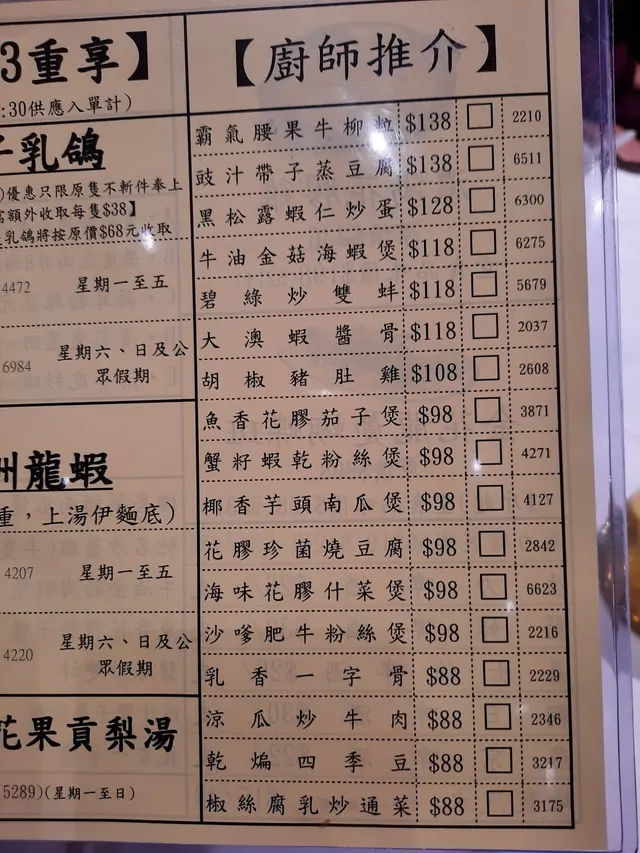 3重享】
:30供應入單計)
乳鴿
)優惠只限原隻不斬件奉上
額外收取每隻$38】
乳鴿將按原價$68元收取
4472 星期一至五
6984 星期六、日及公
眾假期
州龍蝦
重，上湯伊麵底)
4207 星期一至五
4220 星期六、日及公
眾假期
花果貢梨湯
5289)(星期一至日)
【廚師推介】
霸氣腰果牛柳粒 $138 2210
豉汁帶子蒸豆腐 $138 6511
黑松露蝦仁炒蛋 $128 6300
牛油金菇海蝦煲 $118 6275
碧綠炒雙蚌 $118 5679
大澳蝦醬骨 $118 2037
胡椒豬肚雞 $108 2608
魚香花膠茄子煲 $98 3871
蟹籽蝦乾粉絲煲 $98 4271
椰香芋頭南瓜煲 $98 4127
花膠珍菌燒豆腐 $98 2842
海味花膠什菜煲 $98 6623
沙嗲肥牛粉絲煲 $98 2216
乳香一字骨 $88 2229
涼瓜炒牛肉 $88 2346
乾煸四季豆 $88 3217
椒絲腐乳炒通菜 $88 3175